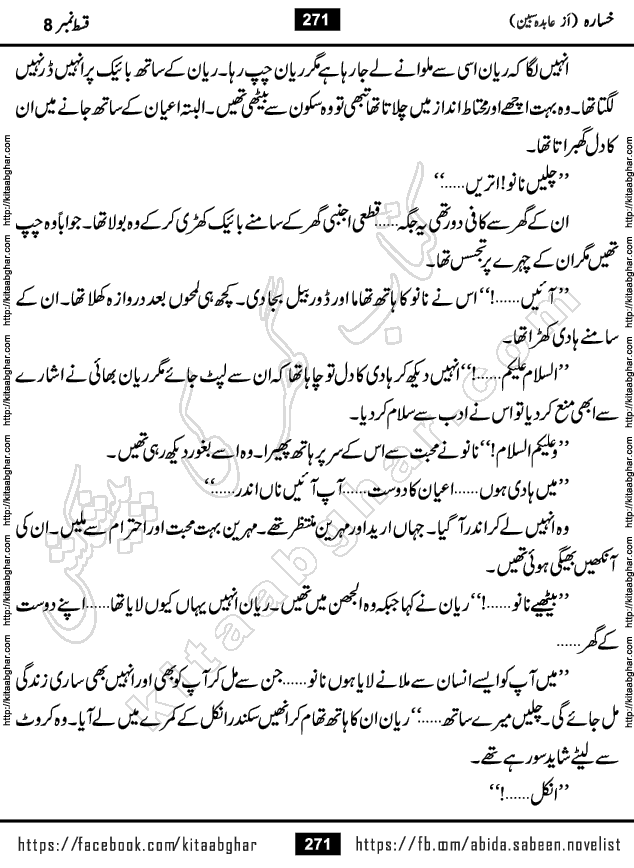 خسارہ (از عابدہ سبین)
271
قسط نمبر 8
انہیں لگا کہ ریان اسی سے ملوانے لے جا رہا ہے مگر ریان چپ رہا۔ ریان کے ساتھ بائیک پر انہیں ڈر نہیں
لگتا تھا۔ وہ بہت اچھے اور محتاط انداز میں چلاتا تھا تبھی تو وہ سکون سے بیٹھی تھیں۔ البتہ اعیان کے ساتھ جانے میں ان
کا دل گھبراتا تھا۔
”چلیں نانو! اتریں......“
ان کے گھر سے کافی دور تھی یہ جگہ......قطعی اجنبی گھر کے سامنے بائیک کھڑی کر کے وہ بولا تھا۔ جواباً وہ چپ
تھیں مگر ان کے چہرے پر تجسس تھا۔
”آئیں......!“ اس نے نانو کا ہاتھ تھاما اور ڈور بیل بجا دی۔ کچھ ہی لمحوں بعد دروازہ کھلا تھا۔ ان کے
سامنے ہادی کھڑا تھا۔
”السلام علیکم......!“ انہیں دیکھ کر ہادی کا دل تو چاہا تھا کہ ان سے لپٹ جائے مگر ریان بھائی نے اشارے
سے ابھی منع کر دیا تو اس نے ادب سے سلام کر دیا۔
”وعلیکم السلام!“ نانو نے محبت سے اس کے سر پر ہاتھ پھیرا۔ وہ اسے بغور دیکھ رہی تھیں۔
”میں ہادی ہوں......اعیان کا دوست......آپ آئیں ناں اندر......“
وہ انہیں لے کر اندر آ گیا۔ جہاں ارید اور مہرین منتظر تھے۔ مہرین بہت محبت اور احترام سے ملیں۔ ان کی
آنکھیں بھیگی ہوئی تھیں۔
”بیٹھیے نانو......!“ ریان نے کہا جبکہ وہ الجھن میں تھیں۔ ریان انہیں یہاں کیوں لایا تھا......اپنے دوست
کے گھر......
”میں آپ کو ایسے انسان سے ملانے لایا ہوں نانو......جن سے مل کر آپ کو بھی اور انہیں بھی ساری زندگی
مل جائے گی۔ چلیں میرے ساتھ......“ ریان ان کا ہاتھ تھام کر انھیں سکندر انکل کے کمرے میں لے آیا۔ وہ کروٹ
سے لیٹے شاید سو رہے تھے۔
”انکل......!“
کتاب گھر کی پیشکش
kitaabghar.com
http://kitaabghar.com http://kitaabghar.com http://kitaabghar.com http://kitaabghar.com http://kitaabghar.com http://kitaabghar.com
http://kitaabghar.com http://kitaabghar.com http://kitaabghar.com http://kitaabghar.com http://kitaabghar.com http://kitaabghar.com
https://facebook.com/kitaabghar
271
https://fb.com/abida.sabeen.novelist